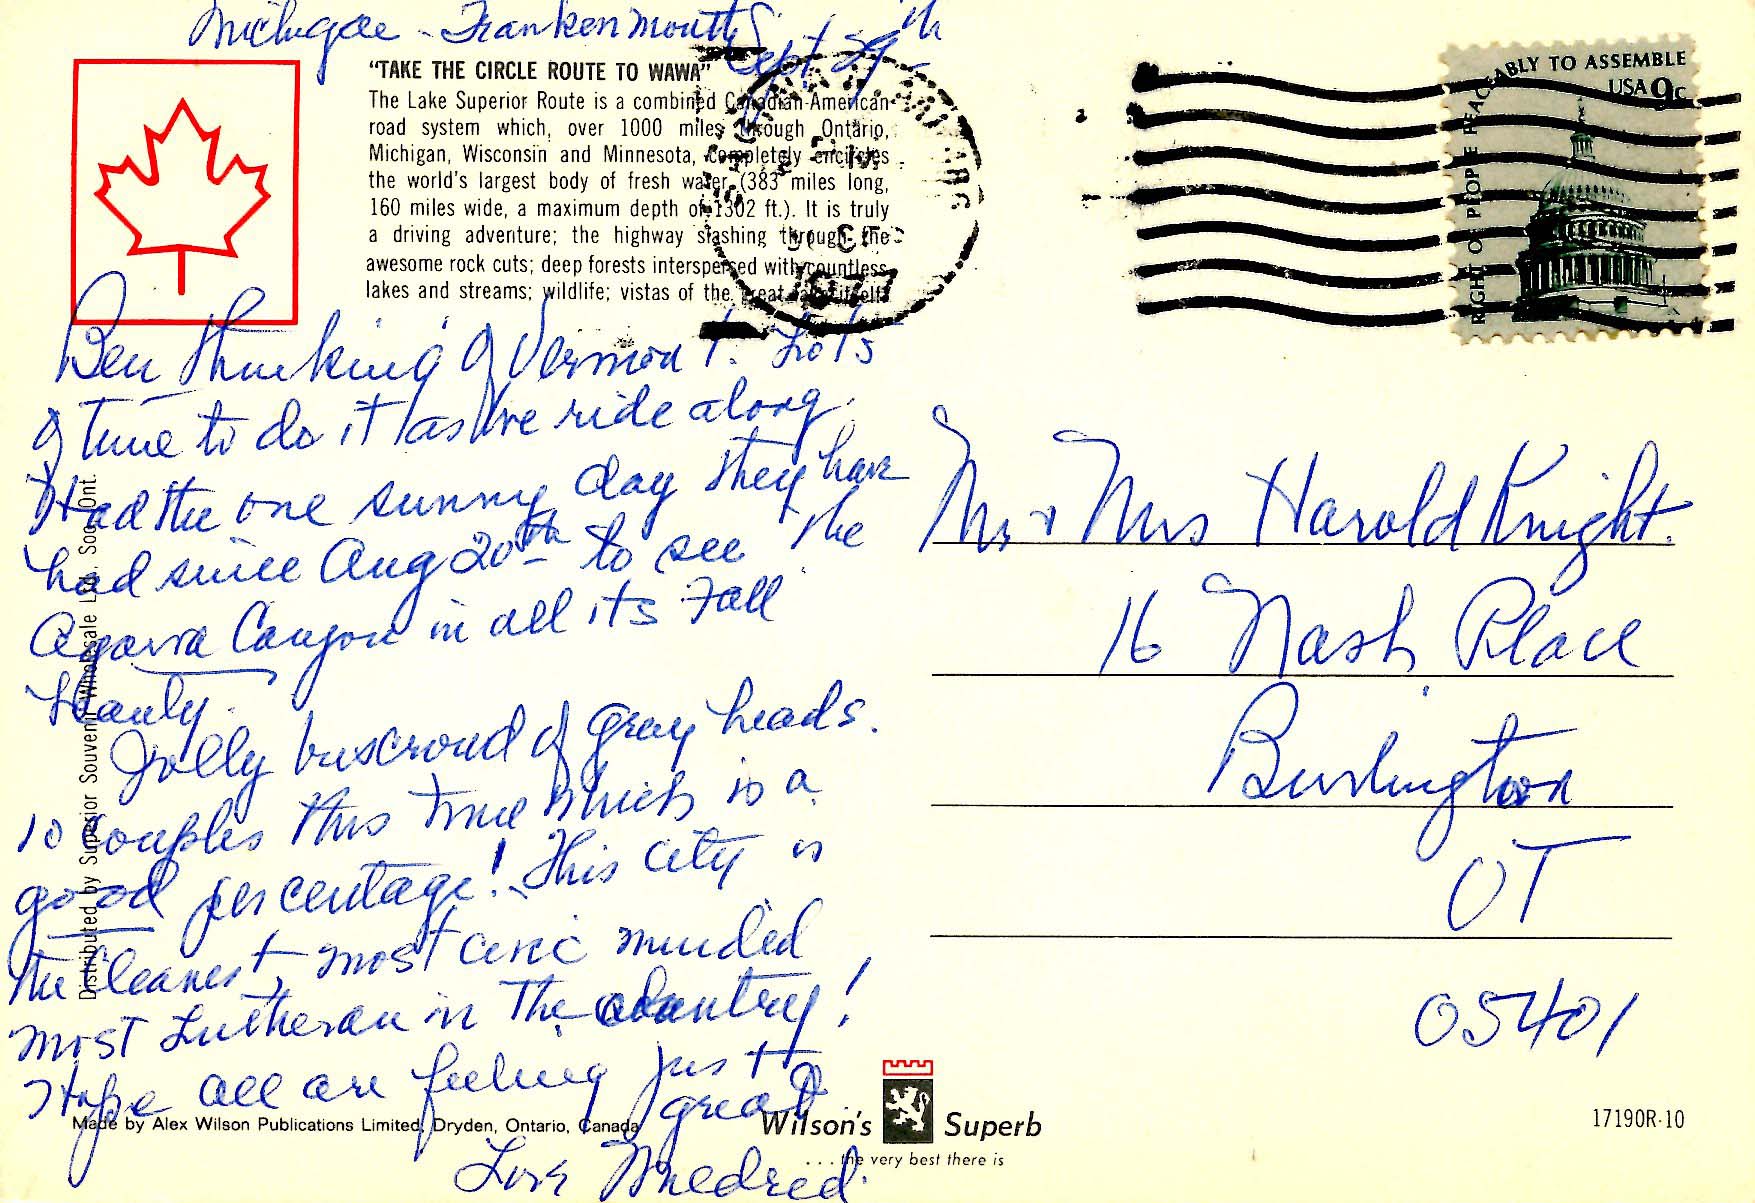 Michigan - Frankenmouth
Sept 29th
"TAKE THE CIRCLE ROUTE TO WAWA"
The Lake Superior Route is a combined Canadian-American
road system which, over 1000 miles through Ontario,
Michigan, Wisconsin and Minnesota, completely encircles
the world's largest body of fresh water (383 miles long,
160 miles wide, a maximum depth of 1302 ft.). It is truly
a driving adventure; the highway slashing through the
awesome rock cuts; deep forests interspersed with countless
lakes and streams; wildlife; vistas of the great lake itself.
RIGHT OF PEOPLE PEACEABLY TO ASSEMBLE
USA 9c
Ben thinking of Vermont. Lots
of time to do it as we ride along.
Had the one sunny day they have
had since Aug 20th to see the
Agawa Canyon in all its Fall
Jolly bus crowd of gray heads.
10 couples this time which is a
good percentage! This city is
the cleanest, most civic minded
most Lutheran in the country!
Hope all are feeling just
great
Love Mildred.
Mr + Mrs Harold Knight.
16 Nash Place
Burlington
VT
05401
Distributed by Superior Souvenir Wholesale Ltd. Soo, Ont.
Made by Alex Wilson Publications Limited, Dryden, Ontario, Canada
Wilson's Superb
... the very best there is
17190R-10